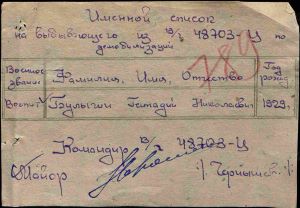 Именной список
на выбывающего из в/ч 48703-Ц по
демобилизации
784
Военное звание Фамилия, Имя, Отчество Год рожд.
Воспит. Булыгин Геннадий Николаевич 1929.
Командир в/ч 48703-Ц
Майор /Чернышев/